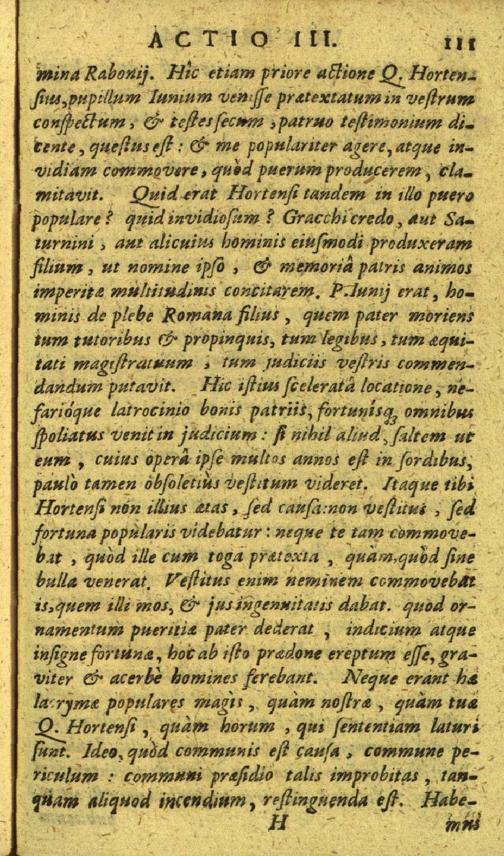 ACTIO III. 111
mina Rabonij. Hîc etiam priore actione Q. Horten-
sius, pupillum Iunium venisse prætextatum in vestrum
conspectum, & testes secum, patruo testimonium di-
cente, questus est: & me populariter agere, atque in-
vidiam commovere, quòd puerum producerem, cla-
mitavit. Quid erat Hortensi tandem in illo puero
populare? quid invidiosum? Gracchi credo, aut Sa-
turnini, aut alicuius hominis eiusmodi produxeram
filium, ut nomine ipso, & memoriâ patris animos
imperitæ multitudinis concitarem. P. Iunij erat, ho-
minis de plebe Romana filius, quem pater moriens
tum tutoribus & propinquis, tum legibus, tum æqui-
tati magistratuum, tum judiciis vestris commen-
dandum putavit. Hic istius sceleratâ locatione, ne-
farióque latrocinio bonis patriis, fortunísq; omnibus
spoliatus venit in judicium: si nihil aliud, saltem ut
eum, cuius operâ ipse multos annos est in sordibus,
paulò tamen obsoletiùs vestitum videret. Itaque tibi
Hortensi non illius ætas, sed causa: non vestitus, sed
fortuna popularis videbatur: neque te tam commove-
bat, quòd ille cum toga prætexta, quàm, quòd sine
bulla venerat. Vestitus enim neminem commovebat
is, quem illi mos, & jus ingenuitatis dabat. quod or-
namentum pueritiæ pater dederat, indicium atque
insigne fortunæ, hoc ab isto prædone ereptum esse, gra-
viter & acerbè homines ferebant. Neque erant hæ
lacrymæ populares magis, quàm nostræ, quàm tuæ
Q. Hortensi, quàm horum, qui sententiam laturi
sunt. Ideo, quòd communis est causa, commune pe-
riculum: communi præsidio talis improbitas, tan-
quam aliquod incendium, restinguenda est. Habe-
H mus